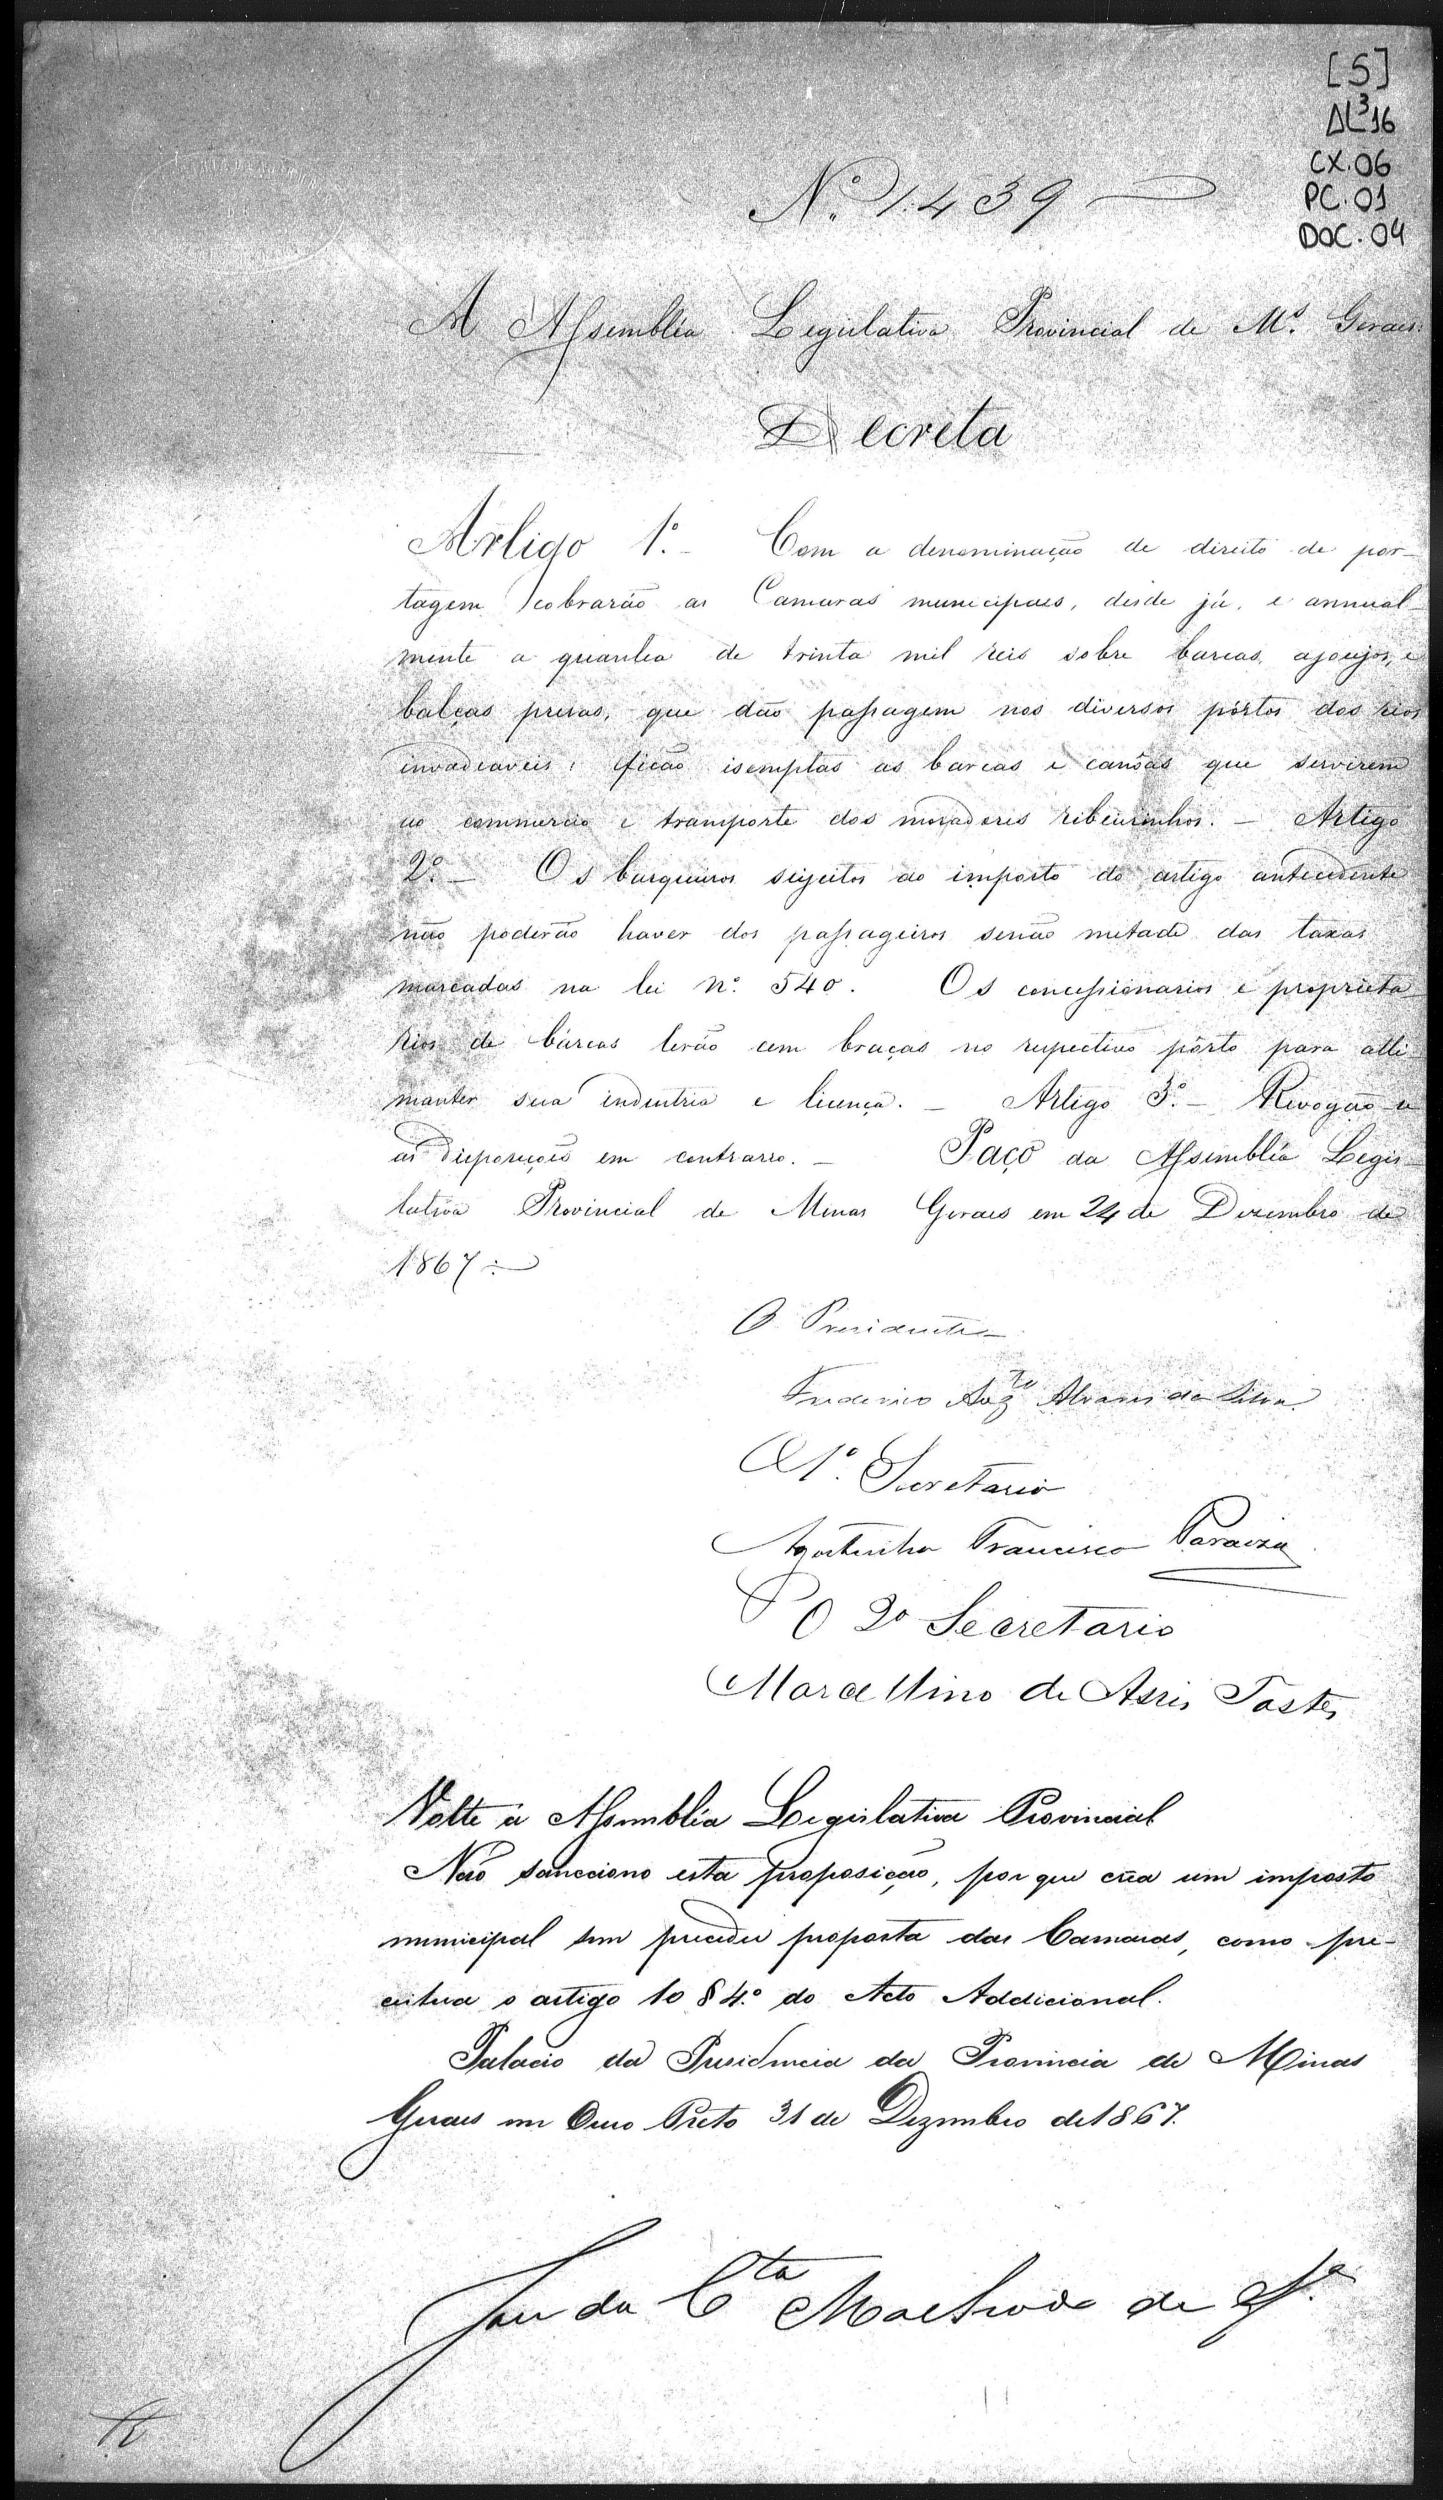 [5]
AL³16
CX.06
PC.01
DOC.04
Nº 1.439
A Assembléa Legislativa Provincial de Mˢ Geraes.
Decreta
Artigo 1º - Com a denominação de direito de por-
tagem cobrarão as Camaras municipaes, desde já, e annual-
mente a quantia de trinta mil reis sobre barcas, ajoujos, e
balças presas, que dão passagem nos diversos pórtos dos rios
invadeaveis; ficão isemptas as barcas e canôas que servirem
ao commercio e transporte dos moradores ribeirinhos. - Artigo
2º - Os barqueiros sujeitos ao imposto do artigo antecedente
não poderão haver dos passageiros senão metade das taxas
marcadas na lei nº 540. Os concessionarios e proprieta
rios de bárcas terão cem braças no respectivo pôrto para alli
manter sua industria e licença. - Artigo 3º - Revogão-se
as disposições em contrario. - Paço da Assembléa Legis-
lativa Provincial de Minas Geraes em 24 de Dezembro de
1867
O Presidente
Frederico Augᵗᵒ Alvares da Silva
O 1º Secretario
Agostinho Francisco Paraizo
O 2º Secretario
Marcellino de Assis Tostes
Volte á Assembléa Legislativa Provincial
Não sancciono esta proposição, por que crêa um imposto
municipal sem preceder proposta das Camaras, como pre-
ceitua o artigo 10 § 4º do Acto Addicional.
Palacio da Presidencia da Provincia de Minas
Geraes em Ouro Preto 31 de Dezembro de 1867.
José da Cᵗᵃ Machado de Sᵃ